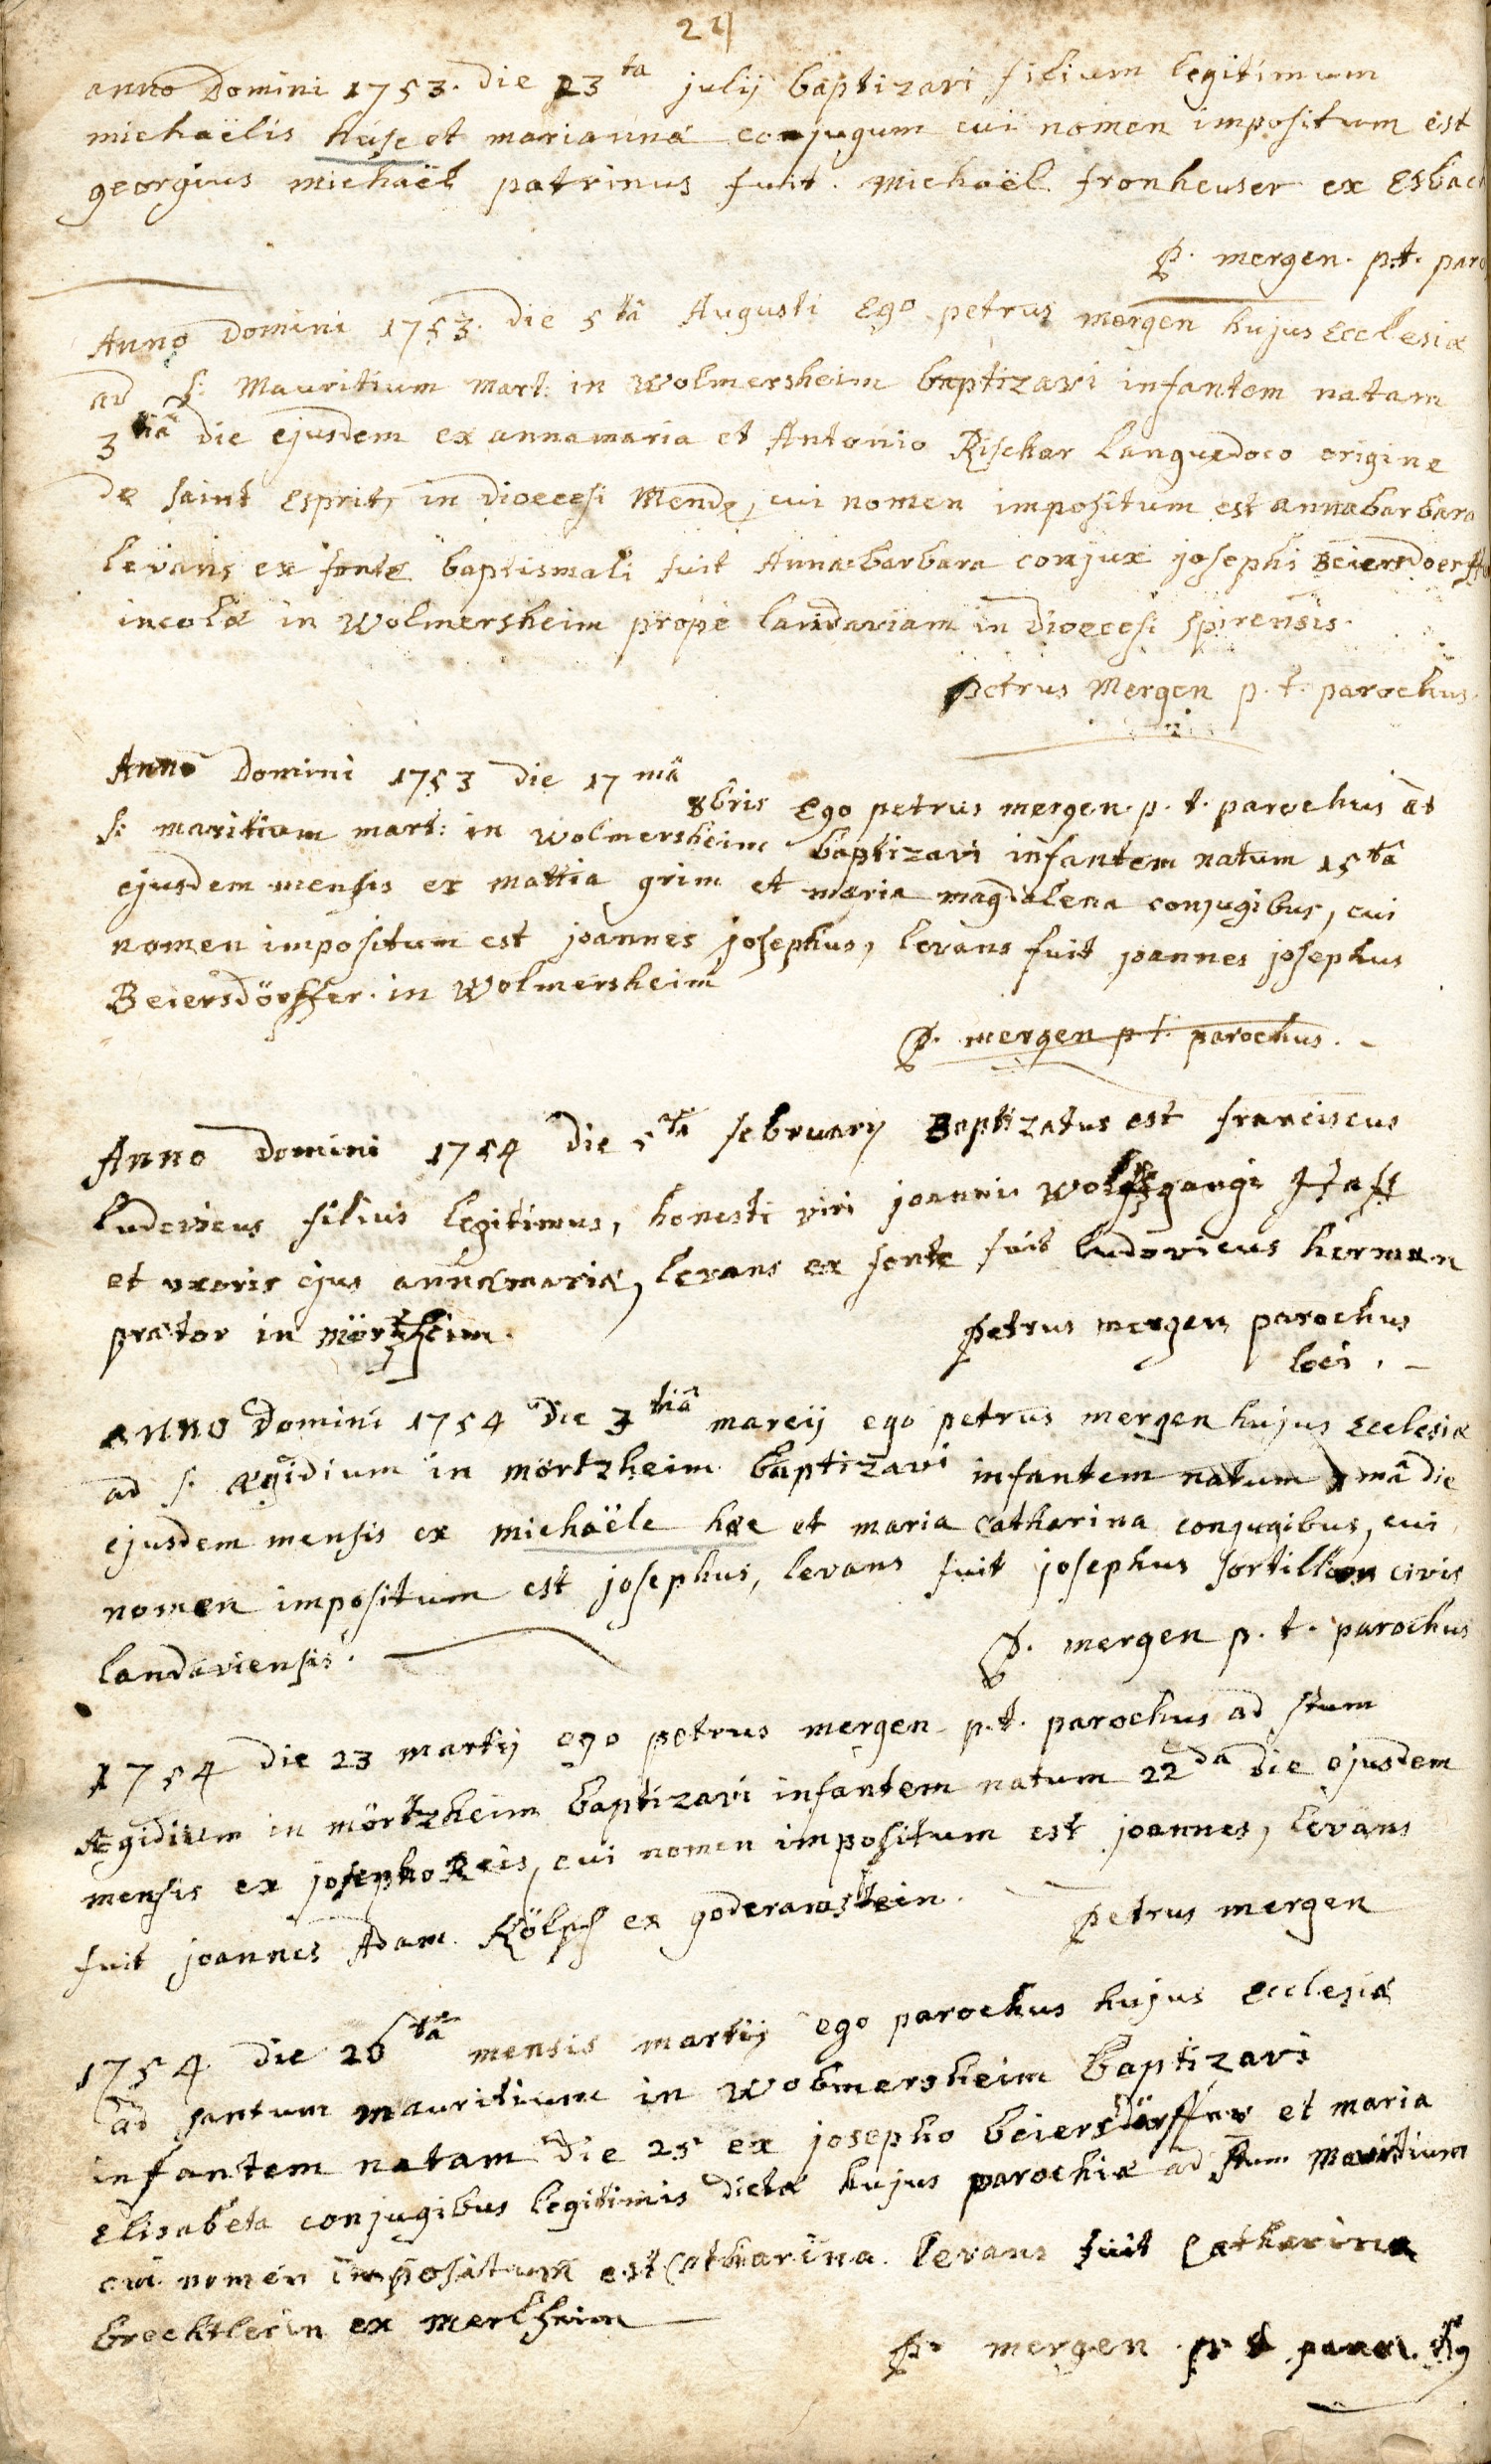 21
anno Domini 1753. die 23ta julij baptizavi filium legitimum
michaëlis hase et marianna conjugum cui nomen impositum est
georgius michaël patrinus fuit. Michaël fronheuser ex Esbach
P. mergen. p.t. paro
Anno Domini 1753. die 5tâ Augusti Ego petrus mergen hujus Ecclesiæ
ad S: Mauritium Mart: in Wolmersheim baptizavi infantem natam
3tiâ die ejusdem ex annamaria et Antonio Rischar Languedoco origine
de saint Esprit, in dioecesi Mendę, cui nomen impositum est annabarbara
levans ex fonte baptismali fuit Annabarbara conjux josephi Beiersdoerff
incolæ in Wolmersheim prope landaviam in dioecesi spirensis.
Petrus Mergen p. t. parochus.
Anno Domini 1753 die 17mâ 8bris Ego petrus mergen. p. t. parochus at
S: maritium mart: in Wolmersheim baptizavi infantem natum 15tâ
ejusdem mensis ex mattia grim et maria magdalena conjugibus, cui
nomen impositum est joannes josephus, levans fuit joannes josephus
Beiersdörffer. in Wolmersheim
P. mergen p t. parochus.
Anno Domini 1754 die 5tâ february Baptizatus est franciscus
ludovicus filius legitimus, honesti viri joannis Wolffgangi
et uxoris ejus annæmariæ, levans ex fonte fuit ludovicus herman
prætor in Mörtzheim.
Petrus mergen parochus
loci.
anno Domini 1754 die 3tiâ marcij ego petrus mergen hujus Ecclesiæ
ad S. ægidium in mörtzheim baptizavi infantem natum mâ die
ejusdem mensis ex michaële hæe et maria catharina conjugibus, cui
nomen impositum est josephus, levans fuit josephus civis
landaviensis.
P. mergen p. t. parochus
1754 die 23 martij ego petrus mergen p.t. parochus ad stum
Ægidium in mörtzheim baptizavi infantem natum 22da die ejusdem
mensis ex josepho Reis, cui nomen impositum est joannes, levans
fuit joannes Adam. Kölsch ex goderamstein.
Petrus mergen
1754 die 26tâ mensis martij ego parochus hujus Ecclesiæ
ad santum mauritium in wobmersheim baptizavi
infantem natam die 25 ex josepho beiersdärffer et maria
Elisabeta conjugibus legitimis dictæ hujus parochiæ ad stum Mauritium
cui nomen impositum est Catharina. levans fuit Catharina
brechtlerin ex merlheim
P. mergen p t